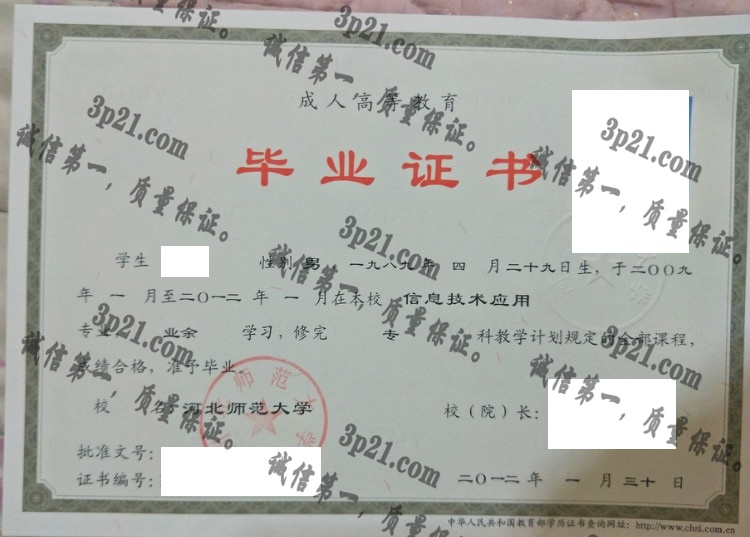 成人高等教育
毕业证书
学生 性别 男 一九八九年 四 月二十九日生，于二〇〇九
年 一 月至二〇一二 年 一 月在本校 信息技术应用
专业 业余 学习，修完 专 科教学计划规定的全部课程，
成绩合格，准予毕业。
校 名：河北师范大学
校（院）长：
批准文号：
证书编号：
二〇一二年 一 月三十日
中华人民共和国教育部学历证书查询网址：http://www.chsi.com.cn
3p21.com
诚信第一，质量保证。
3p21.com
诚信第一，质量保证。
3p21.com
诚信第一，质量保证。
3p21.com
诚信第一，质量保证。
3p21.com
诚信第一，质量保证。
3p21.com
诚信第一，质量保证。